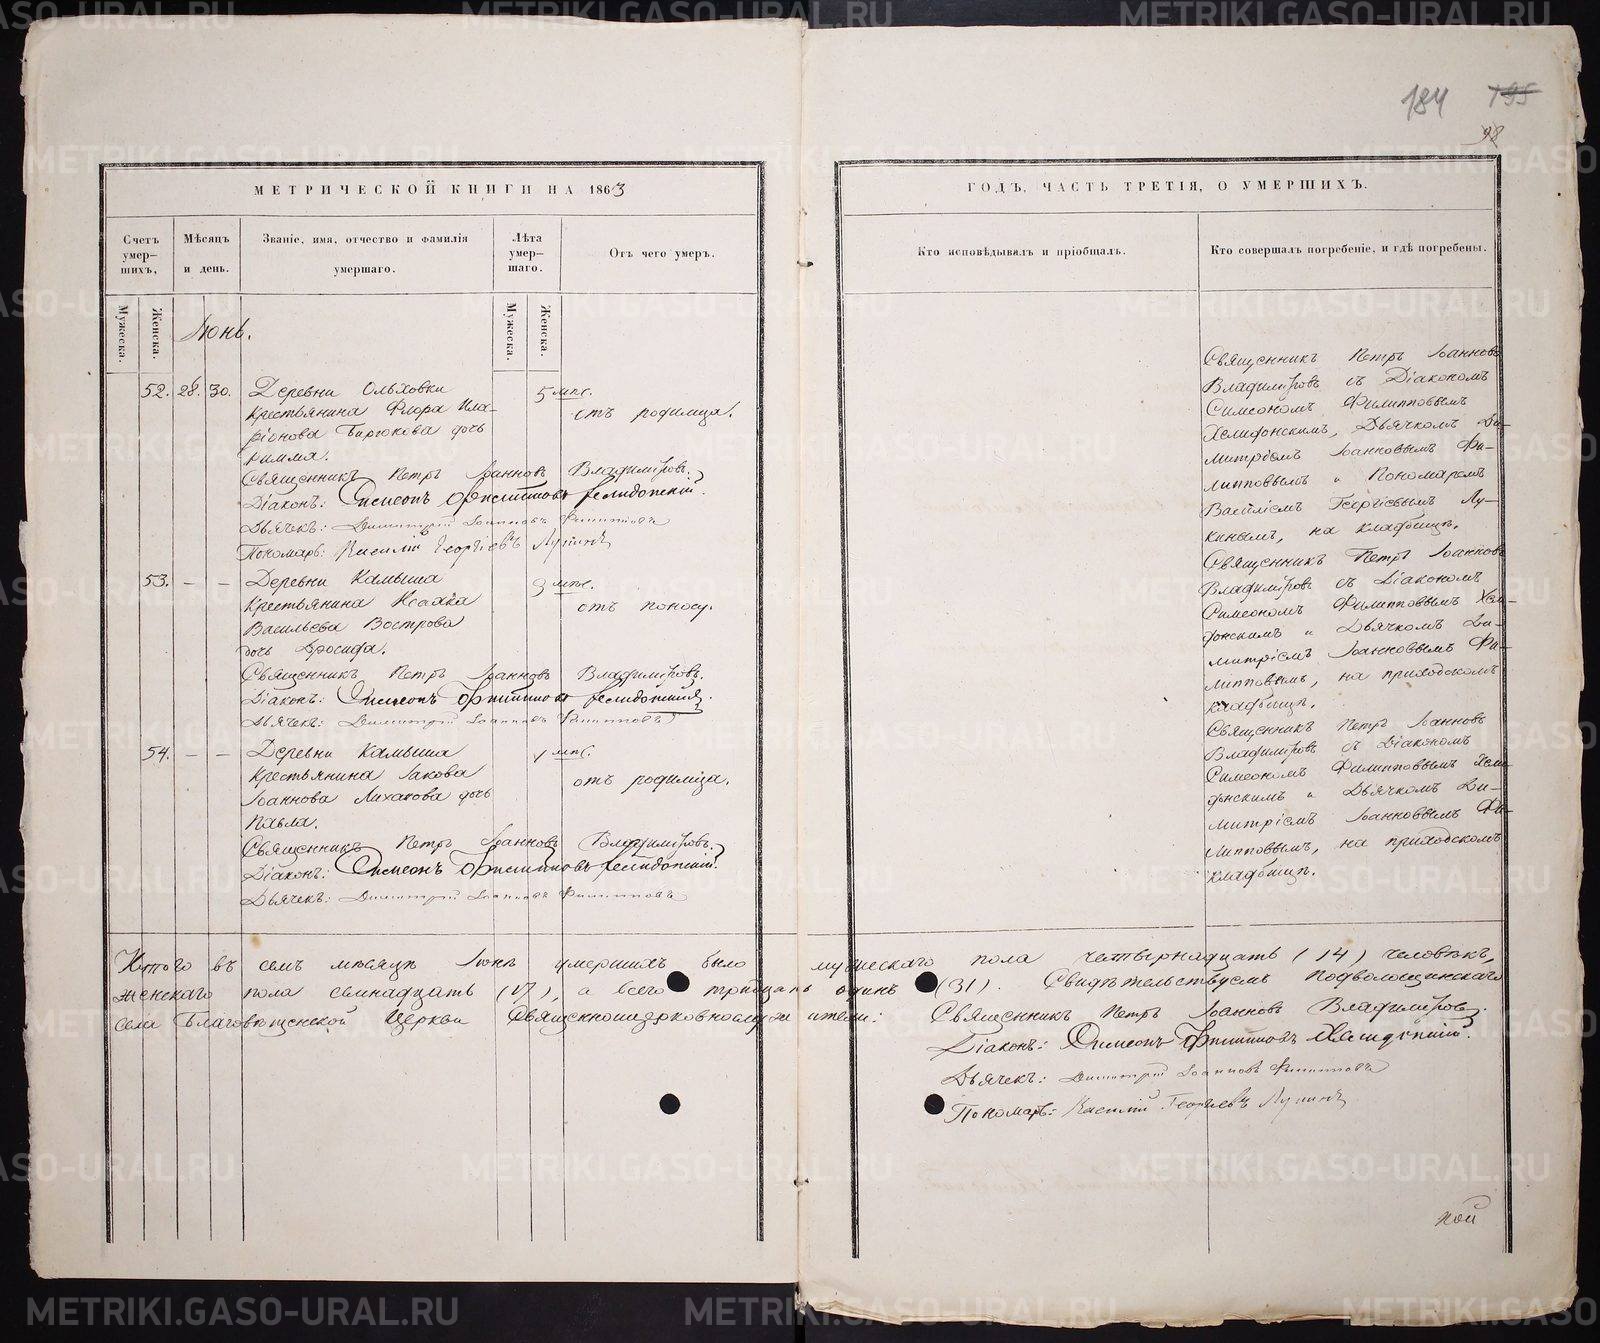 184 195
98
МЕТРИЧЕСКОЙ КНИГИ НА 1863
ГОДЪ, ЧАСТЬ ТРЕТІЯ, О УМЕРШИХЪ.
Счетъ умер-шихъ,
Мѣсяцъ и день.
Званіе, имя, отчество и фамилія умершаго.
Лѣта умер-шаго.
Отъ чего умеръ.
Кто исповѣдывалъ и пріобщалъ.
Кто совершалъ погребеніе, и гдѣ погребены.
Мужеска.
Женска.
Мужеска.
Женска.
Іюнь.
52. 28. 30. Деревни Ольховки 5 мѣс.
Крестьянина Флора Ила- отъ родимца.
ріонова Бирюкова дочь
Римма.
Священникъ Петръ Іоанновъ Владиміровъ.
Діаконъ: Симеонъ Филипповъ
Дьячекъ: Димитрій Іоанновъ Филипповъ
Пономарь: Василій Георгіевъ Лукинъ
53. – – Деревни Камыша 9 мѣс.
Крестьянина Исаака отъ поносу.
Васильева Вострова
дочь Дросида.
Священникъ Петръ Іоанновъ Владиміровъ.
Діаконъ: Симеонъ Филипповъ
Дьячекъ: Димитрій Іоанновъ Филипповъ
54. – – Деревни Камыша 1 мѣс.
Крестьянина Іакова отъ родимца.
Іоаннова Лихачова дочь
Павла.
Священникъ Петръ Іоанновъ Владиміровъ.
Діаконъ: Симеонъ Филипповъ
Дьячекъ: Димитрій Іоанновъ Филипповъ
Священникъ Петръ Іоанновъ
Владиміровъ съ Діакономъ
Симеономъ Филипповымъ
Хелидонскимъ, Дьячкомъ Ди-
митріемъ Іоанновымъ Фи-
липповымъ и Пономаремъ
Василіемъ Георгіевымъ Лу-
кинымъ, на кладбищѣ.
Священникъ Петръ Іоанновъ
Владиміровъ съ Діакономъ
Симеономъ Филипповымъ Хели-
донскимъ и Дьячкомъ Ди-
митріемъ Іоанновымъ Фи-
липповымъ, на приходскомъ
кладбищѣ.
Священникъ Петръ Іоанновъ
Владиміровъ съ Діакономъ
Симеономъ Филипповымъ Хели-
донскимъ и Дьячкомъ Ди-
митріемъ Іоанновымъ Фи-
липповымъ, на приходскомъ
кладбищѣ.
Итого въ семъ мѣсяцѣ Іюнѣ умершихъ было мужескаго пола четырнадцать (14) человѣкъ,
женскаго пола семнадцать (17), а всего тридцать одинъ (31). Свидѣтельствуемъ Подволошинскаго
села Благовѣщенской Церкви Священноцерковнослужители: Священникъ Петръ Іоанновъ Владиміровъ.
Діаконъ: Симеонъ Филипповъ Хелидонскій.
Дьячекъ: Димитрій Іоанновъ Филипповъ
Пономарь: Василій Георгіевъ Лукинъ
ной
METRIKI.GASO-URAL.RU